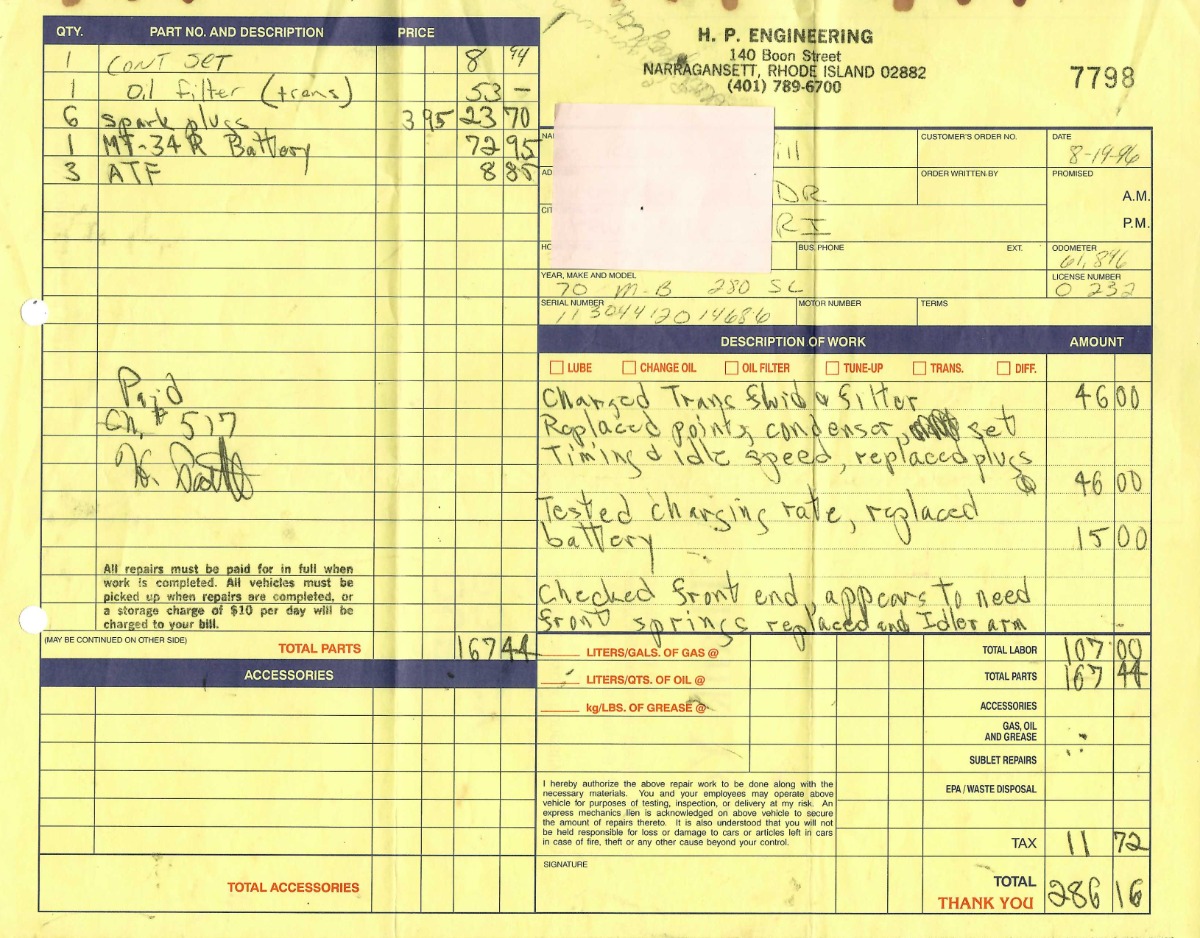 H. P. ENGINEERING
140 Boon Street
NARRAGANSETT, RHODE ISLAND 02882
(401) 789-6700
7798
QTY. PART NO. AND DESCRIPTION PRICE
1 CONT SET 8 94
1 Oil filter (trans) 53 —
6 spark plugs 3 95 23 70
1 MT-34R Battery 72 95
3 ATF 8 85
Paid
Ch. # 517
All repairs must be paid for in full when
work is completed. All vehicles must be
picked up when repairs are completed, or
a storage charge of $10 per day will be
charged to your bill.
(MAY BE CONTINUED ON OTHER SIDE)
TOTAL PARTS 167 44
ACCESSORIES
TOTAL ACCESSORIES
NA
CUSTOMER'S ORDER NO.
DATE
8-19-96
AD
DR
ORDER WRITTEN BY
PROMISED
A.M.
P.M.
CIT
RI
HO
BUS. PHONE
EXT.
ODOMETER
61,896
YEAR, MAKE AND MODEL
70 M-B 280 SL
LICENSE NUMBER
O 232
SERIAL NUMBER
11304412014686
MOTOR NUMBER
TERMS
DESCRIPTION OF WORK AMOUNT
LUBE CHANGE OIL OIL FILTER TUNE-UP TRANS. DIFF.
Changed Trans fluid & filter 46 00
Replaced points, condensor, set
Timing & idle speed, replaced plugs
46 00
Tested charging rate, replaced
battery 15 00
Checked front end, appears to need
front springs replaced and Idler arm
LITERS/GALS. OF GAS @
TOTAL LABOR 107 00
LITERS/QTS. OF OIL @
TOTAL PARTS 167 44
kg/LBS. OF GREASE @
ACCESSORIES
GAS, OIL
AND GREASE
SUBLET REPAIRS
EPA / WASTE DISPOSAL
I hereby authorize the above repair work to be done along with the
necessary materials. You and your employees may operate above
vehicle for purposes of testing, inspection, or delivery at my risk. An
express mechanics lien is acknowledged on above vehicle to secure
the amount of repairs thereto. It is also understood that you will not
be held responsible for loss or damage to cars or articles left in cars
in case of fire, theft or any other cause beyond your control.
TAX 11 72
SIGNATURE
TOTAL 286 16
THANK YOU